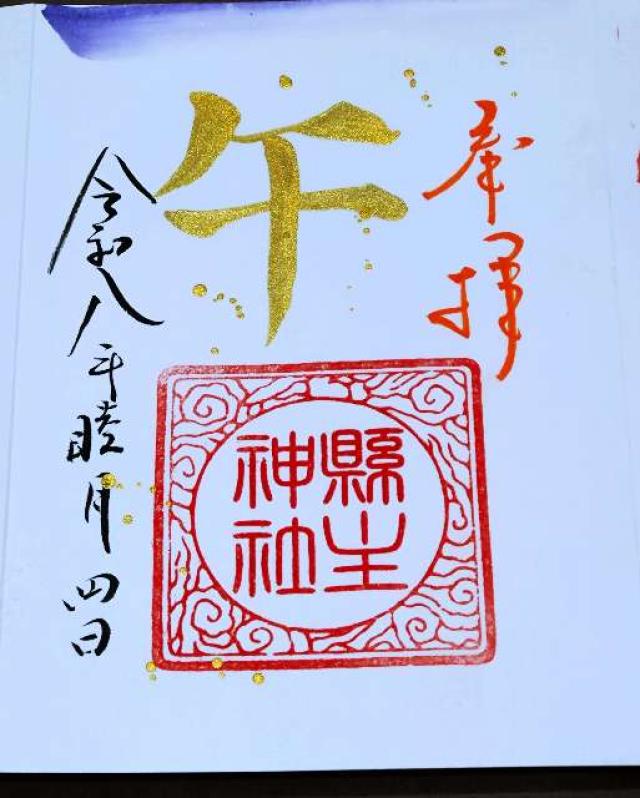 奉拝
午
縣主
神社
令和八年睦月四日